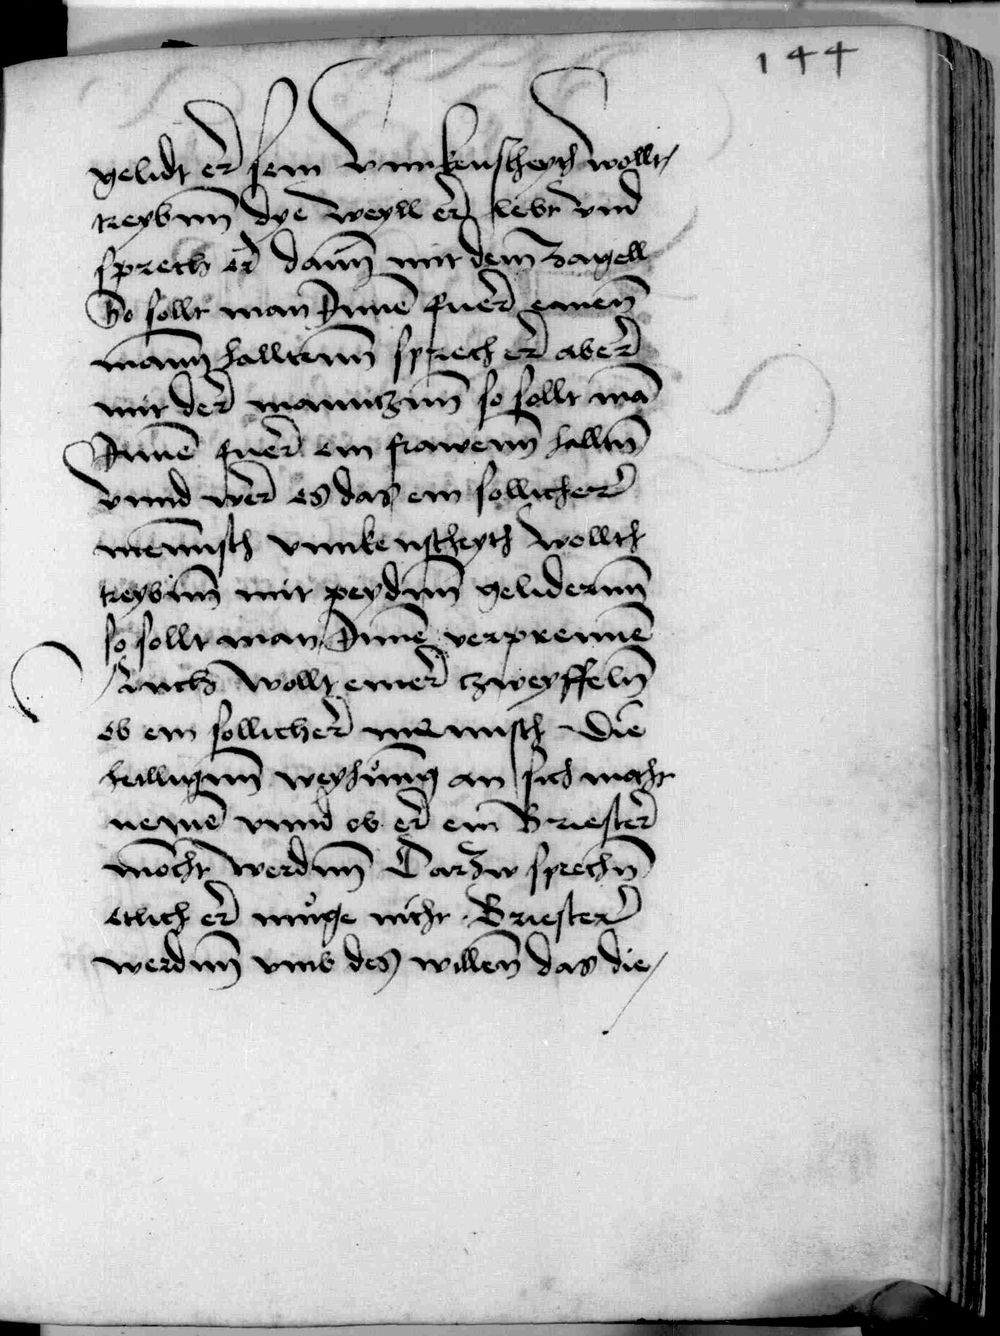 144
gelidt er sein vnnkenscheyth wollt
treybenn dye weyll er lebt vnd
sprech er dann mit dem zagell
So sollt man Inne fuer einen
mann halltenn sprech er aber
mit der manntzenn so sollt mā
Inne fuer ein frawenn halltn̄
vnnd wer es das ein sollicher
mennsch vnnkenscheyth wollth
treybenn mit peydenn geliderenn
so sollt man Inne verprennē
Auch wollt einer zweyffeln̄
ob ein sollicher mennsch die
heilligenn weyhŭnng an sich mocht
nemē vnnd ob er ein Briester
mocht werdenn Darzw sprechn̄
etlich er mŭge nicht Briester
werdenn vmb des willen das die